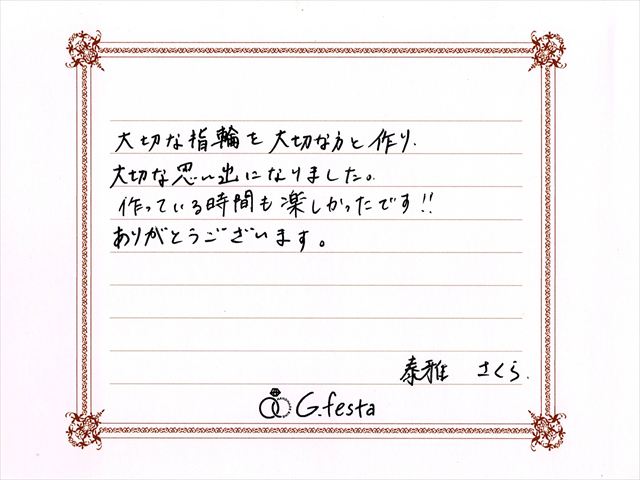 大切な指輪を大切な方と作り、
大切な思い出になりました。
作っている時間も楽しかったです!!
ありがとうございます。
泰雅 さくら.
G.festa